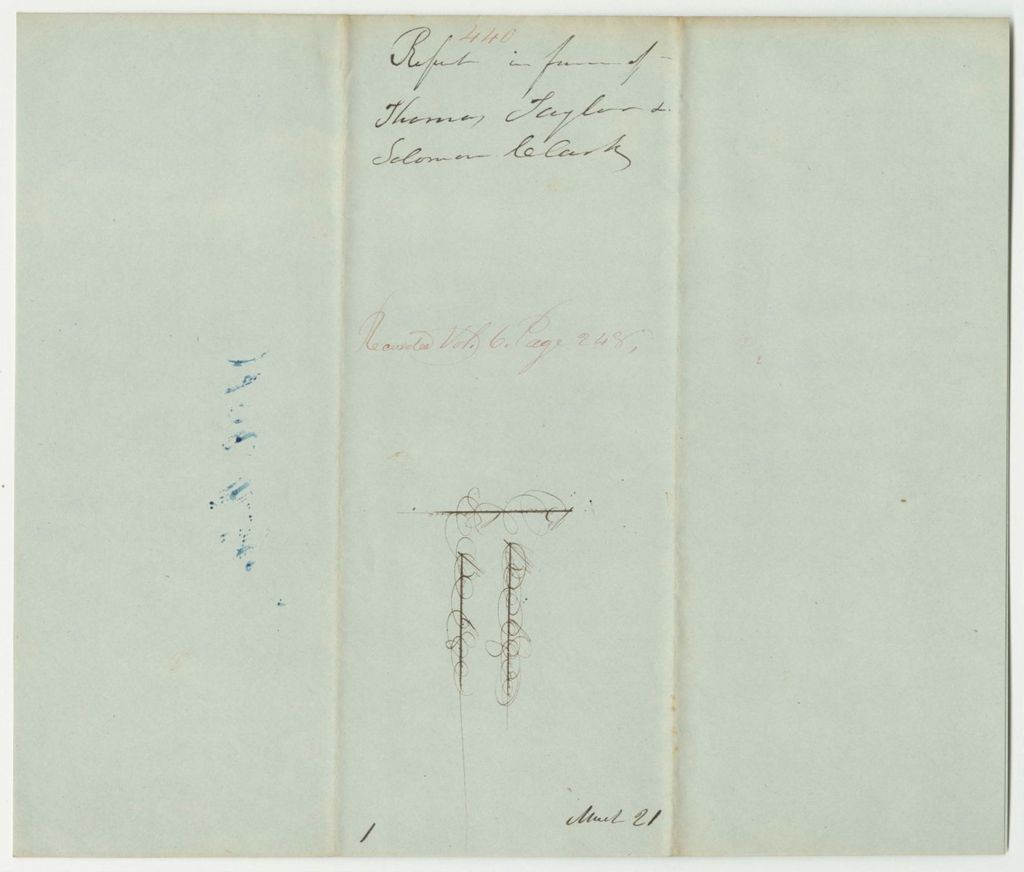 440
Report in favor of
Thomas Taylor &
Solomon Clark
Recorded Vol. 6. Page 248,
1
March 21